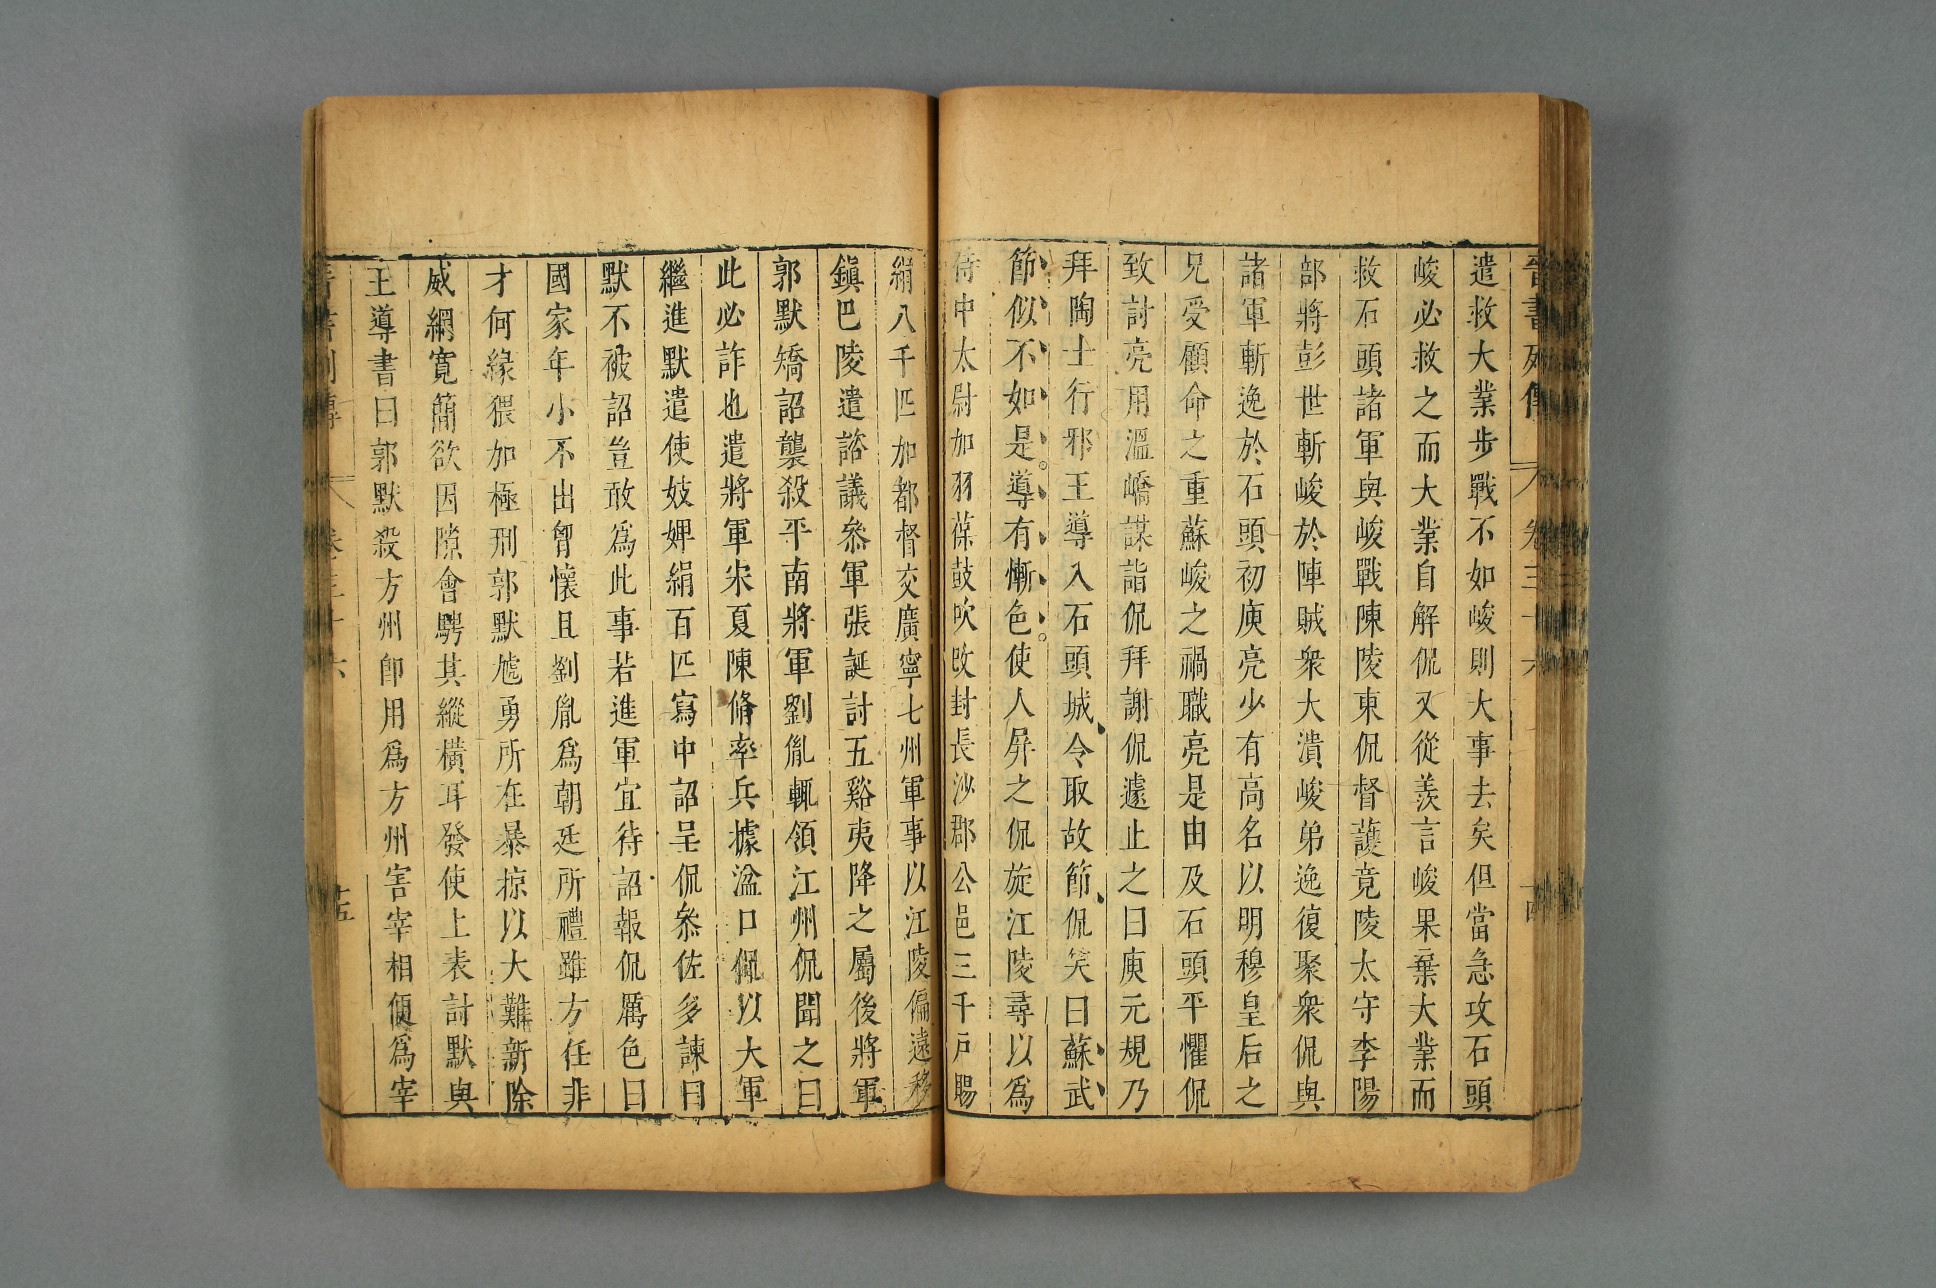 晉書列傳 卷三十六 十四
遣救大業步戰不如峻則大事去矣但當急攻石頭
峻必救之而大業自解侃又從羨言峻果棄大業而
救石頭諸軍與峻戰陳陵東侃督護竟陵太守李陽
部將彭世斬峻於陣賊衆大潰峻弟逸復聚衆侃與
諸軍斬逸於石頭初庾亮少有高名以明穆皇后之
兄受顧命之重蘇峻之禍職亮是由及石頭平懼侃
致討亮用溫嶠謀詣侃拜謝侃遽止之曰庾元規乃
拜陶士行邪王導入石頭城令取故節侃笑曰蘇武
節似不如是導有慚色使人屏之侃旋江陵尋以爲
侍中太尉加羽葆鼓吹改封長沙郡公邑三千戶賜
絹八千匹加都督交廣寧七州軍事以江陵偏遠移
鎭巴陵遣諮議參軍張誕討五谿夷降之屬後將軍
郭默矯詔襲殺平南將軍劉胤輒領江州侃聞之曰
此必詐也遣將軍宋夏陳脩率兵據湓口侃以大軍
繼進默遣使妓婢絹百匹寫中詔呈侃參佐多諫曰
默不被詔豈敢爲此事若進軍宜待詔報侃厲色曰
國家年小不出胷懷且劉胤爲朝廷所禮雖方任非
才何緣猥加極刑郭默虓勇所在暴掠以大難新除
威網寬簡欲因隙會騁其縱橫耳發使上表討默與
王導書曰郭默殺方州卽用爲方州害宰相便爲宰
晉書列傳 卷三十六 十五